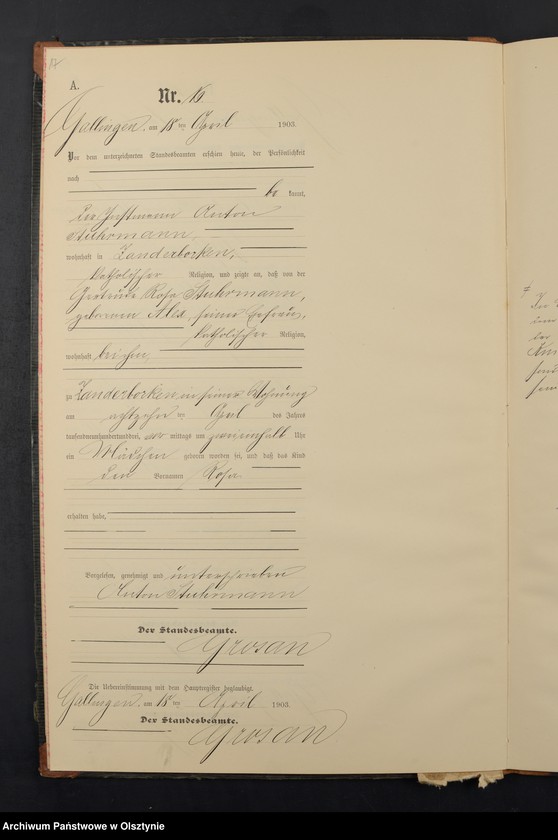 A.
Nr. 15
Gallingen, am 18ten April 1903.
Vor dem unterzeichneten Standesbeamten erschien heute, der Persönlichkeit
nach
be kannt,
der Instmann Anton
Stuhrmann,
wohnhaft in Zanderborken,
katholischer Religion, und zeigte an, daß von der
Gertrude Rosa Stuhrmann,
geborenen Alex, seiner Ehefrau,
katholischer Religion,
wohnhaft bei ihm,
zu Zanderborken in seiner Wohnung
am achtzehnten April des Jahres
tausendneunhundertunddrei, vormittags um Uhr
ein Mädchen geboren worden sei, und daß das Kind
den Vornamen Rosa
erhalten habe,
Vorgelesen, genehmigt und unterschrieben
Anton Stuhrmann
Der Standesbeamte.
Grosan
Die Uebereinstimmung mit dem Hauptregister beglaubigt.
Gallingen, am 18ten April 1903.
Der Standesbeamte.
Grosan
Archiwum Państwowe w Olsztynie